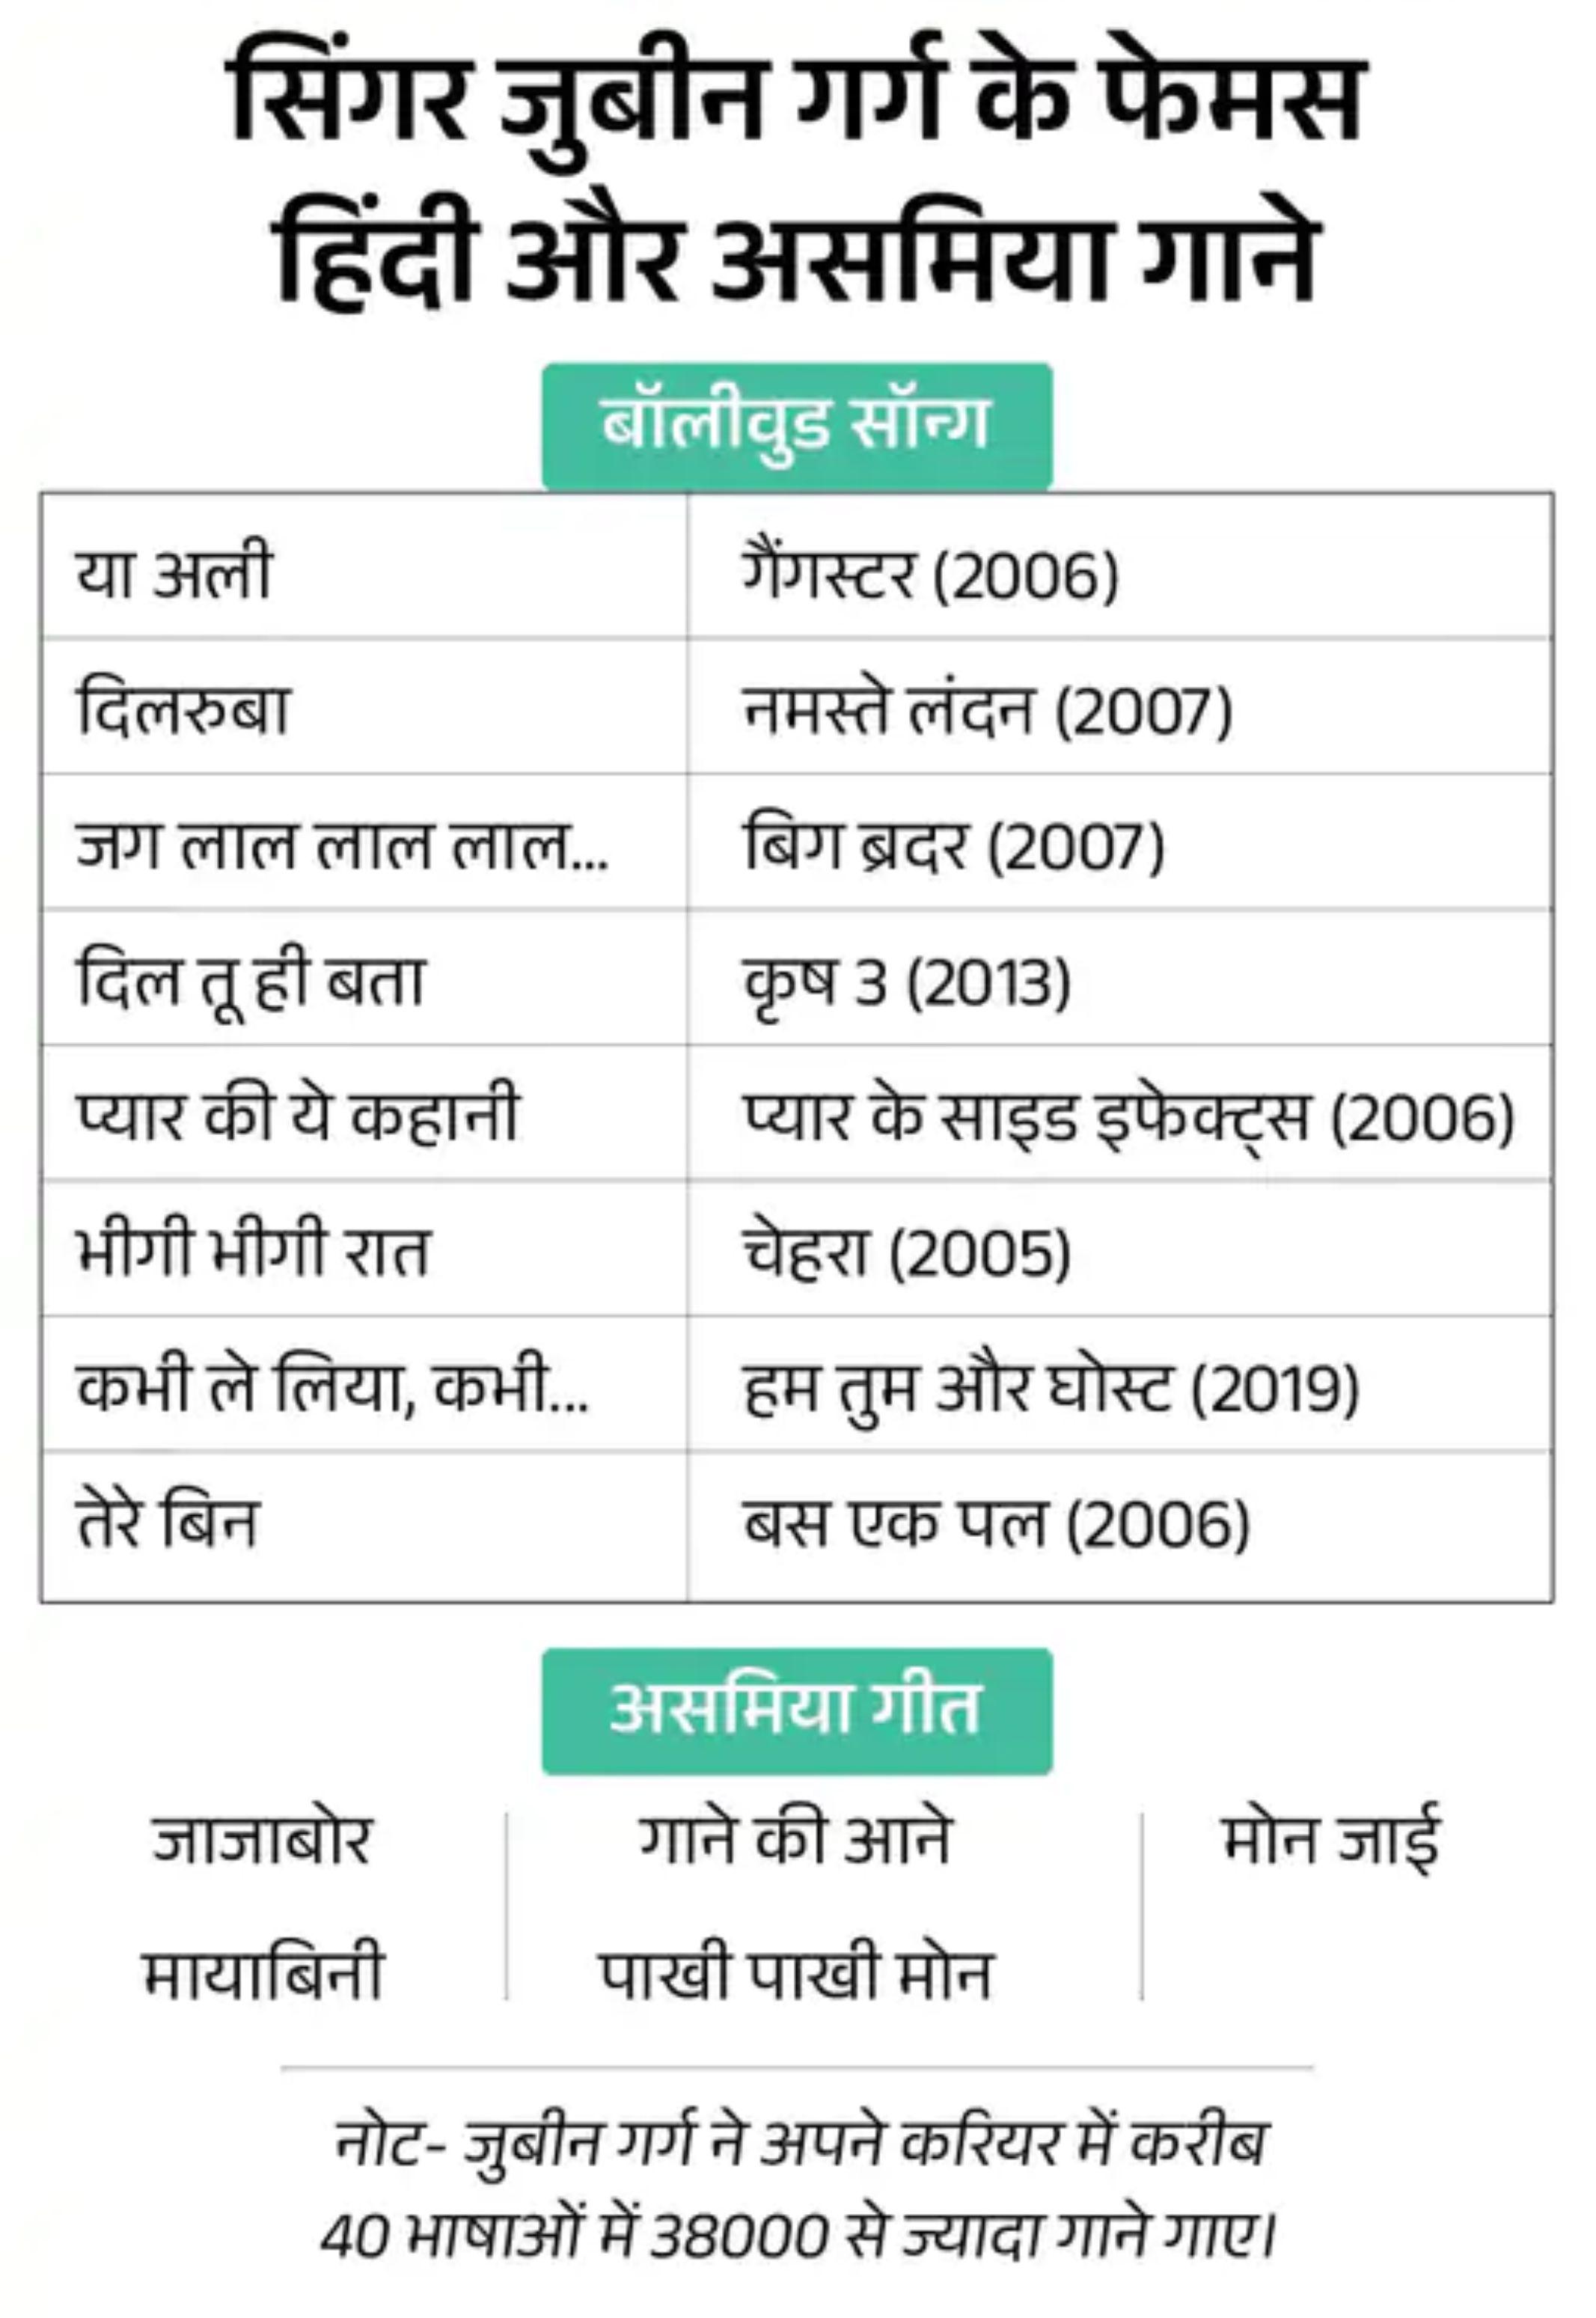 सिंगर जुबीन गर्ग के फेमस
हिंदी और असमिया गाने
बॉलीवुड सॉन्ग
या अली गैंगस्टर (2006)
दिलरुबा नमस्ते लंदन (2007)
जग लाल लाल लाल... बिग ब्रदर (2007)
दिल तू ही बता कृष 3 (2013)
प्यार की ये कहानी प्यार के साइड इफेक्ट्स (2006)
भीगी भीगी रात चेहरा (2005)
कभी ले लिया, कभी... हम तुम और घोस्ट (2019)
तेरे बिन बस एक पल (2006)
असमिया गीत
जाजाबोर गाने की आने मोन जाई
मायाबिनी पाखी पाखी मोन
नोट- जुबीन गर्ग ने अपने करियर में करीब
40 भाषाओं में 38000 से ज्यादा गाने गाए।